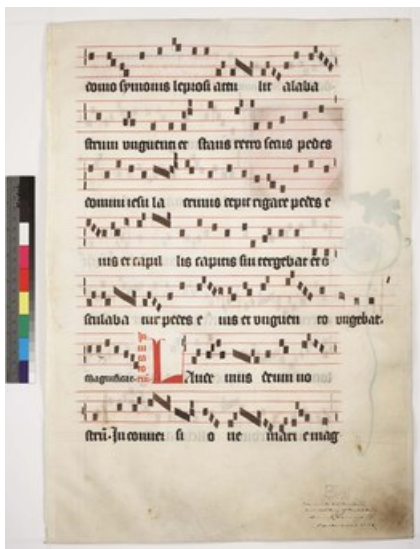 domo symonis leprosi attu lit alaba
strum unguenti et stans retro secus pedes
domini iesu la crimis cepit rigare pedes e
ius et capil lis capitis sui tergebat et o
sculaba tur pedes e ius et unguen to ungebat.
magnificat. L Aver mus
strũ. In conver si o ne mari e mag